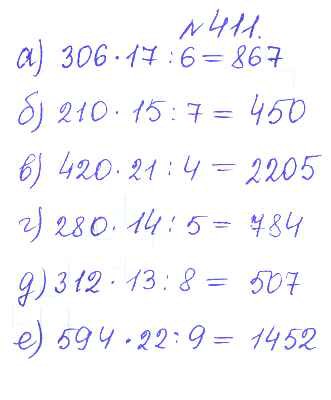 №411.
а) 306·17:6=867
б) 210·15:7=450
в) 420·21:4=2205
г) 280·14:5=784
д) 312·13:8=507
е) 594·22:9=1452